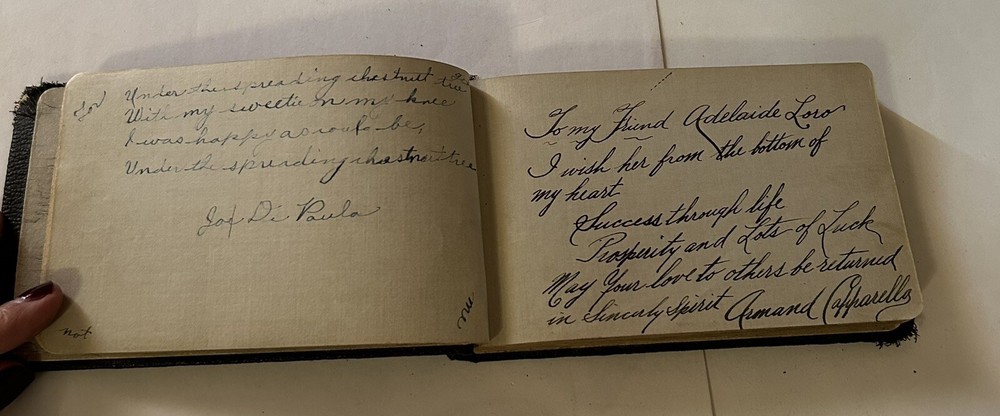 Under the spreading chestnut tree
With my sweetie on my knee
I was happy as could be,
Under the spreading chestnut tree
Joe Di Paula
not
me
To my Friend Adelaide Loro
I wish her from the bottom of
my heart
Success through life
Prosperity and Lots of Luck
May Your love to others be returned
in Sincerly Spirit Armand Capparella